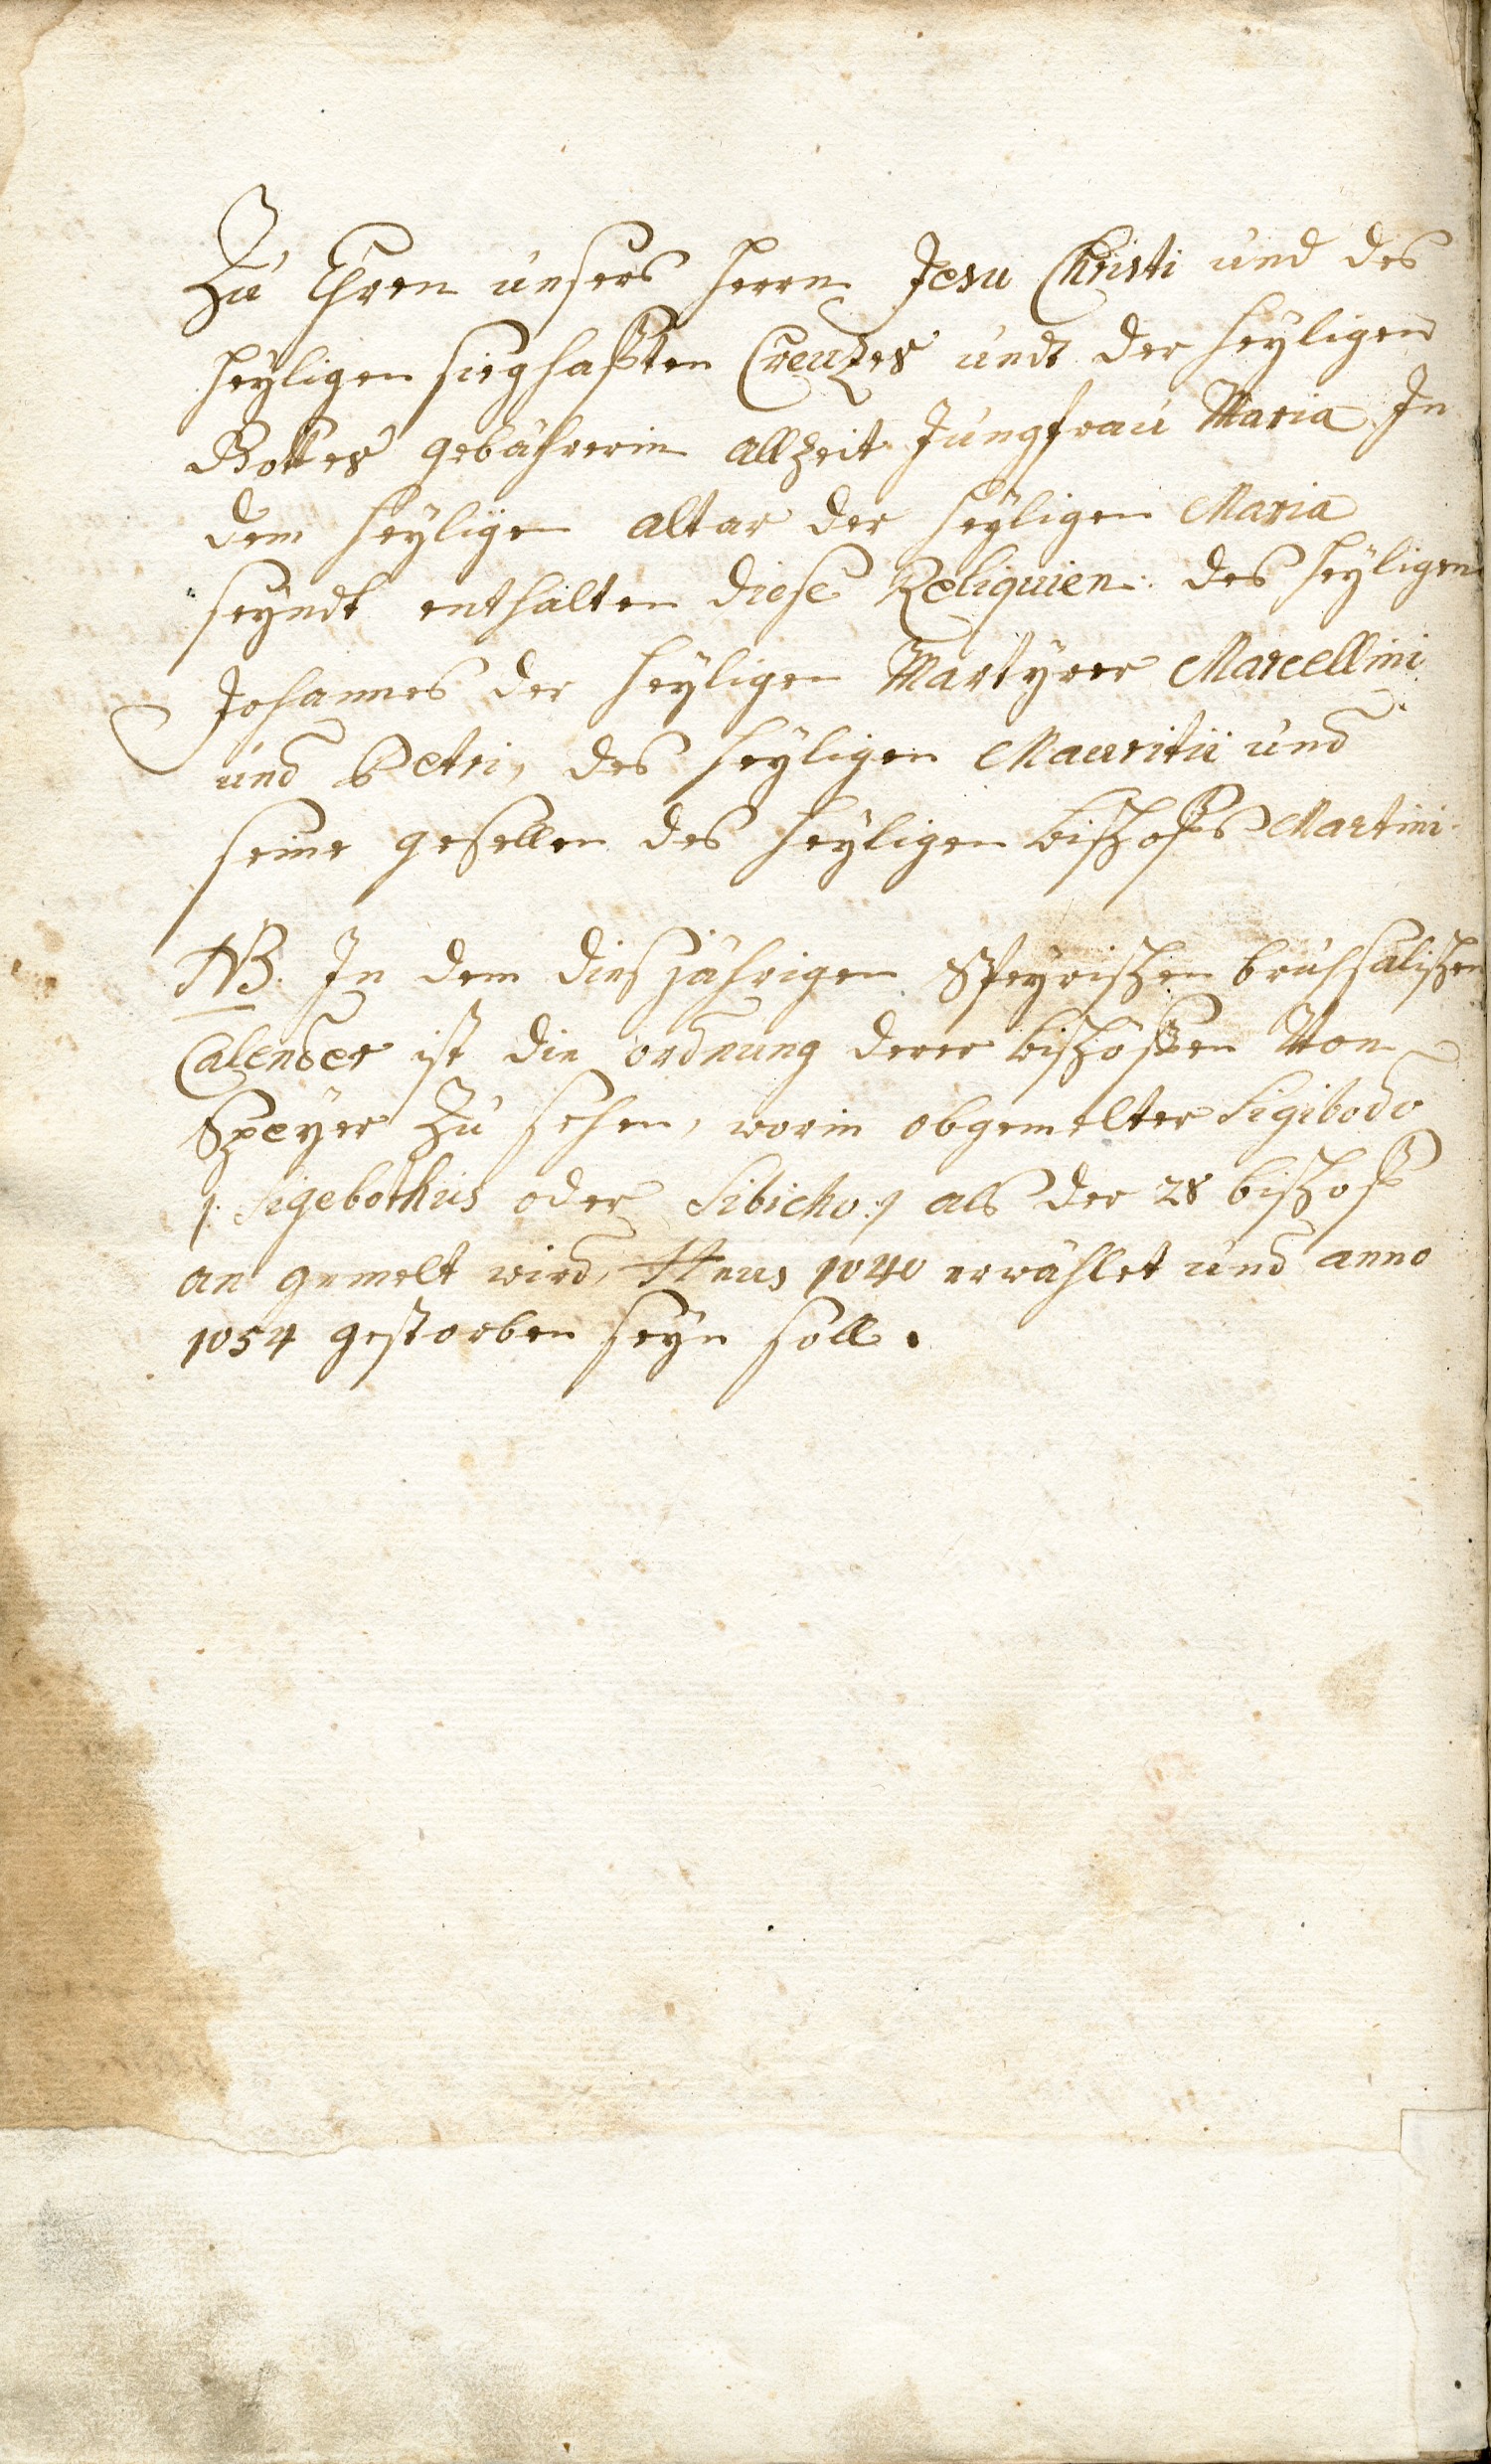 Zu Ehren unsers herrn Jesu Christi und des
heyligen sieghafften Creutzes undt der heyligen
Gottes gebährerin allzeit Jungfrau Maria In
dem heylige altar der heyligen Maria
seyndt enthalten diese Reliquien: des heyligen
Johannes der heyligen Martyrer Marcellini
und Petri, des heyligen Mauritii und
seine gesellen des heyligen bischoffs Martini.
NB. In dem diesjährigen Speyrischen bruchsalischen
Calender ist die ordnung derer bischöffen Von
Speyer zu sehen, worin obgemelter Sigibodo
/: Sigebothus oder Sibicho :/ als der 28 bischoff
an gemelt wird, 1040 erwählet und anno
1054 gestorben seyn soll.